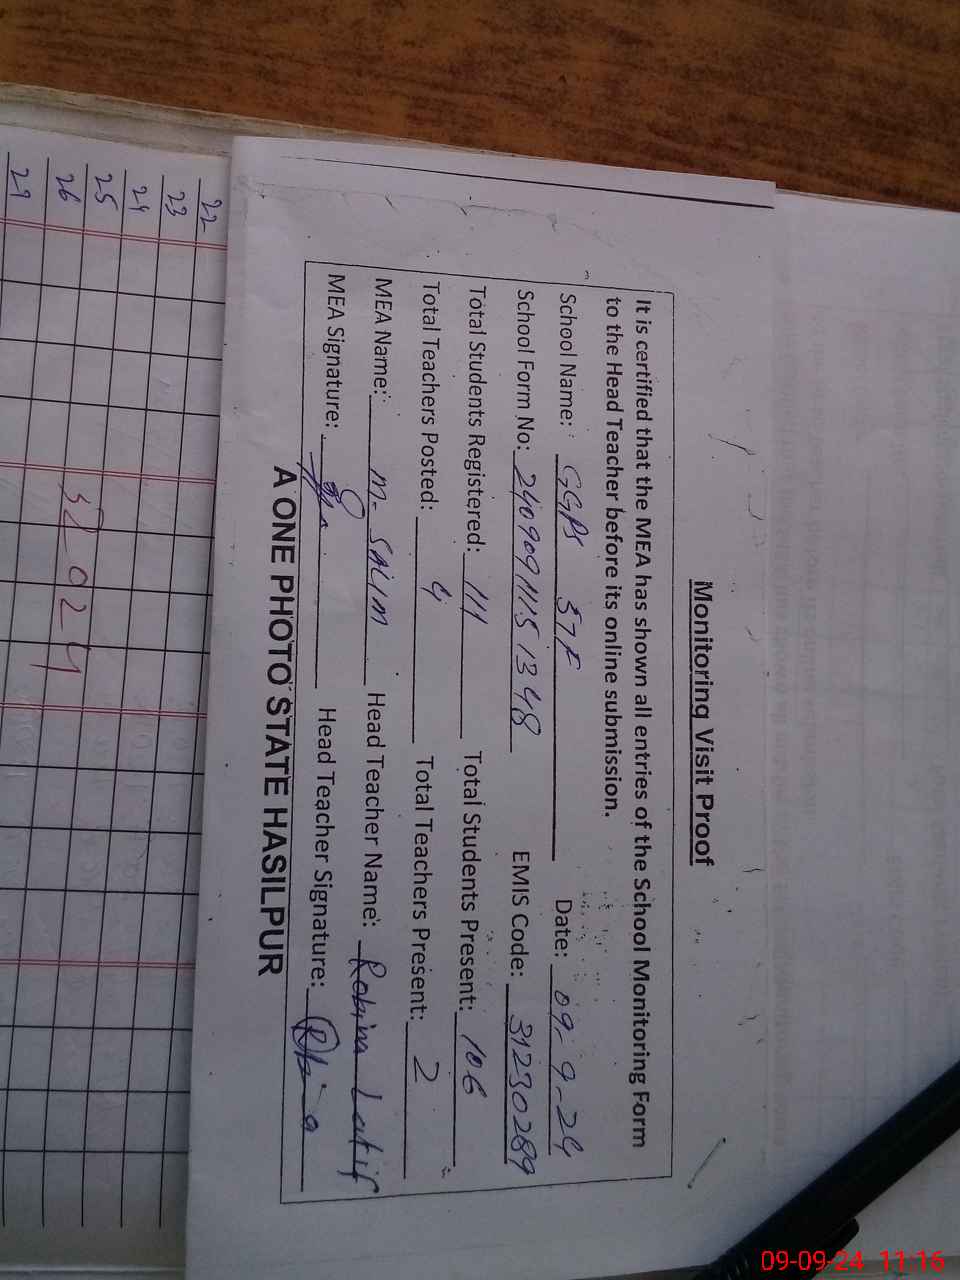 Monitoring Visit Proof
It is certified that the MEA has shown all entries of the School Monitoring Form
to the Head Teacher before its online submission.
School Name: GGPS 57F Date: 09-9-24
School Form No: 2409091115 1348 EMIS Code: 31230289
Total Students Registered: 111 Total Students Present: 106
Total Teachers Posted: 4 Total Teachers Present: 2
MEA Name: M. SALIM Head Teacher Name: Robina Latif
MEA Signature: Head Teacher Signature:
A ONE PHOTO STATE HASILPUR
22
23
24
25
26
27
09-09-24 11:16